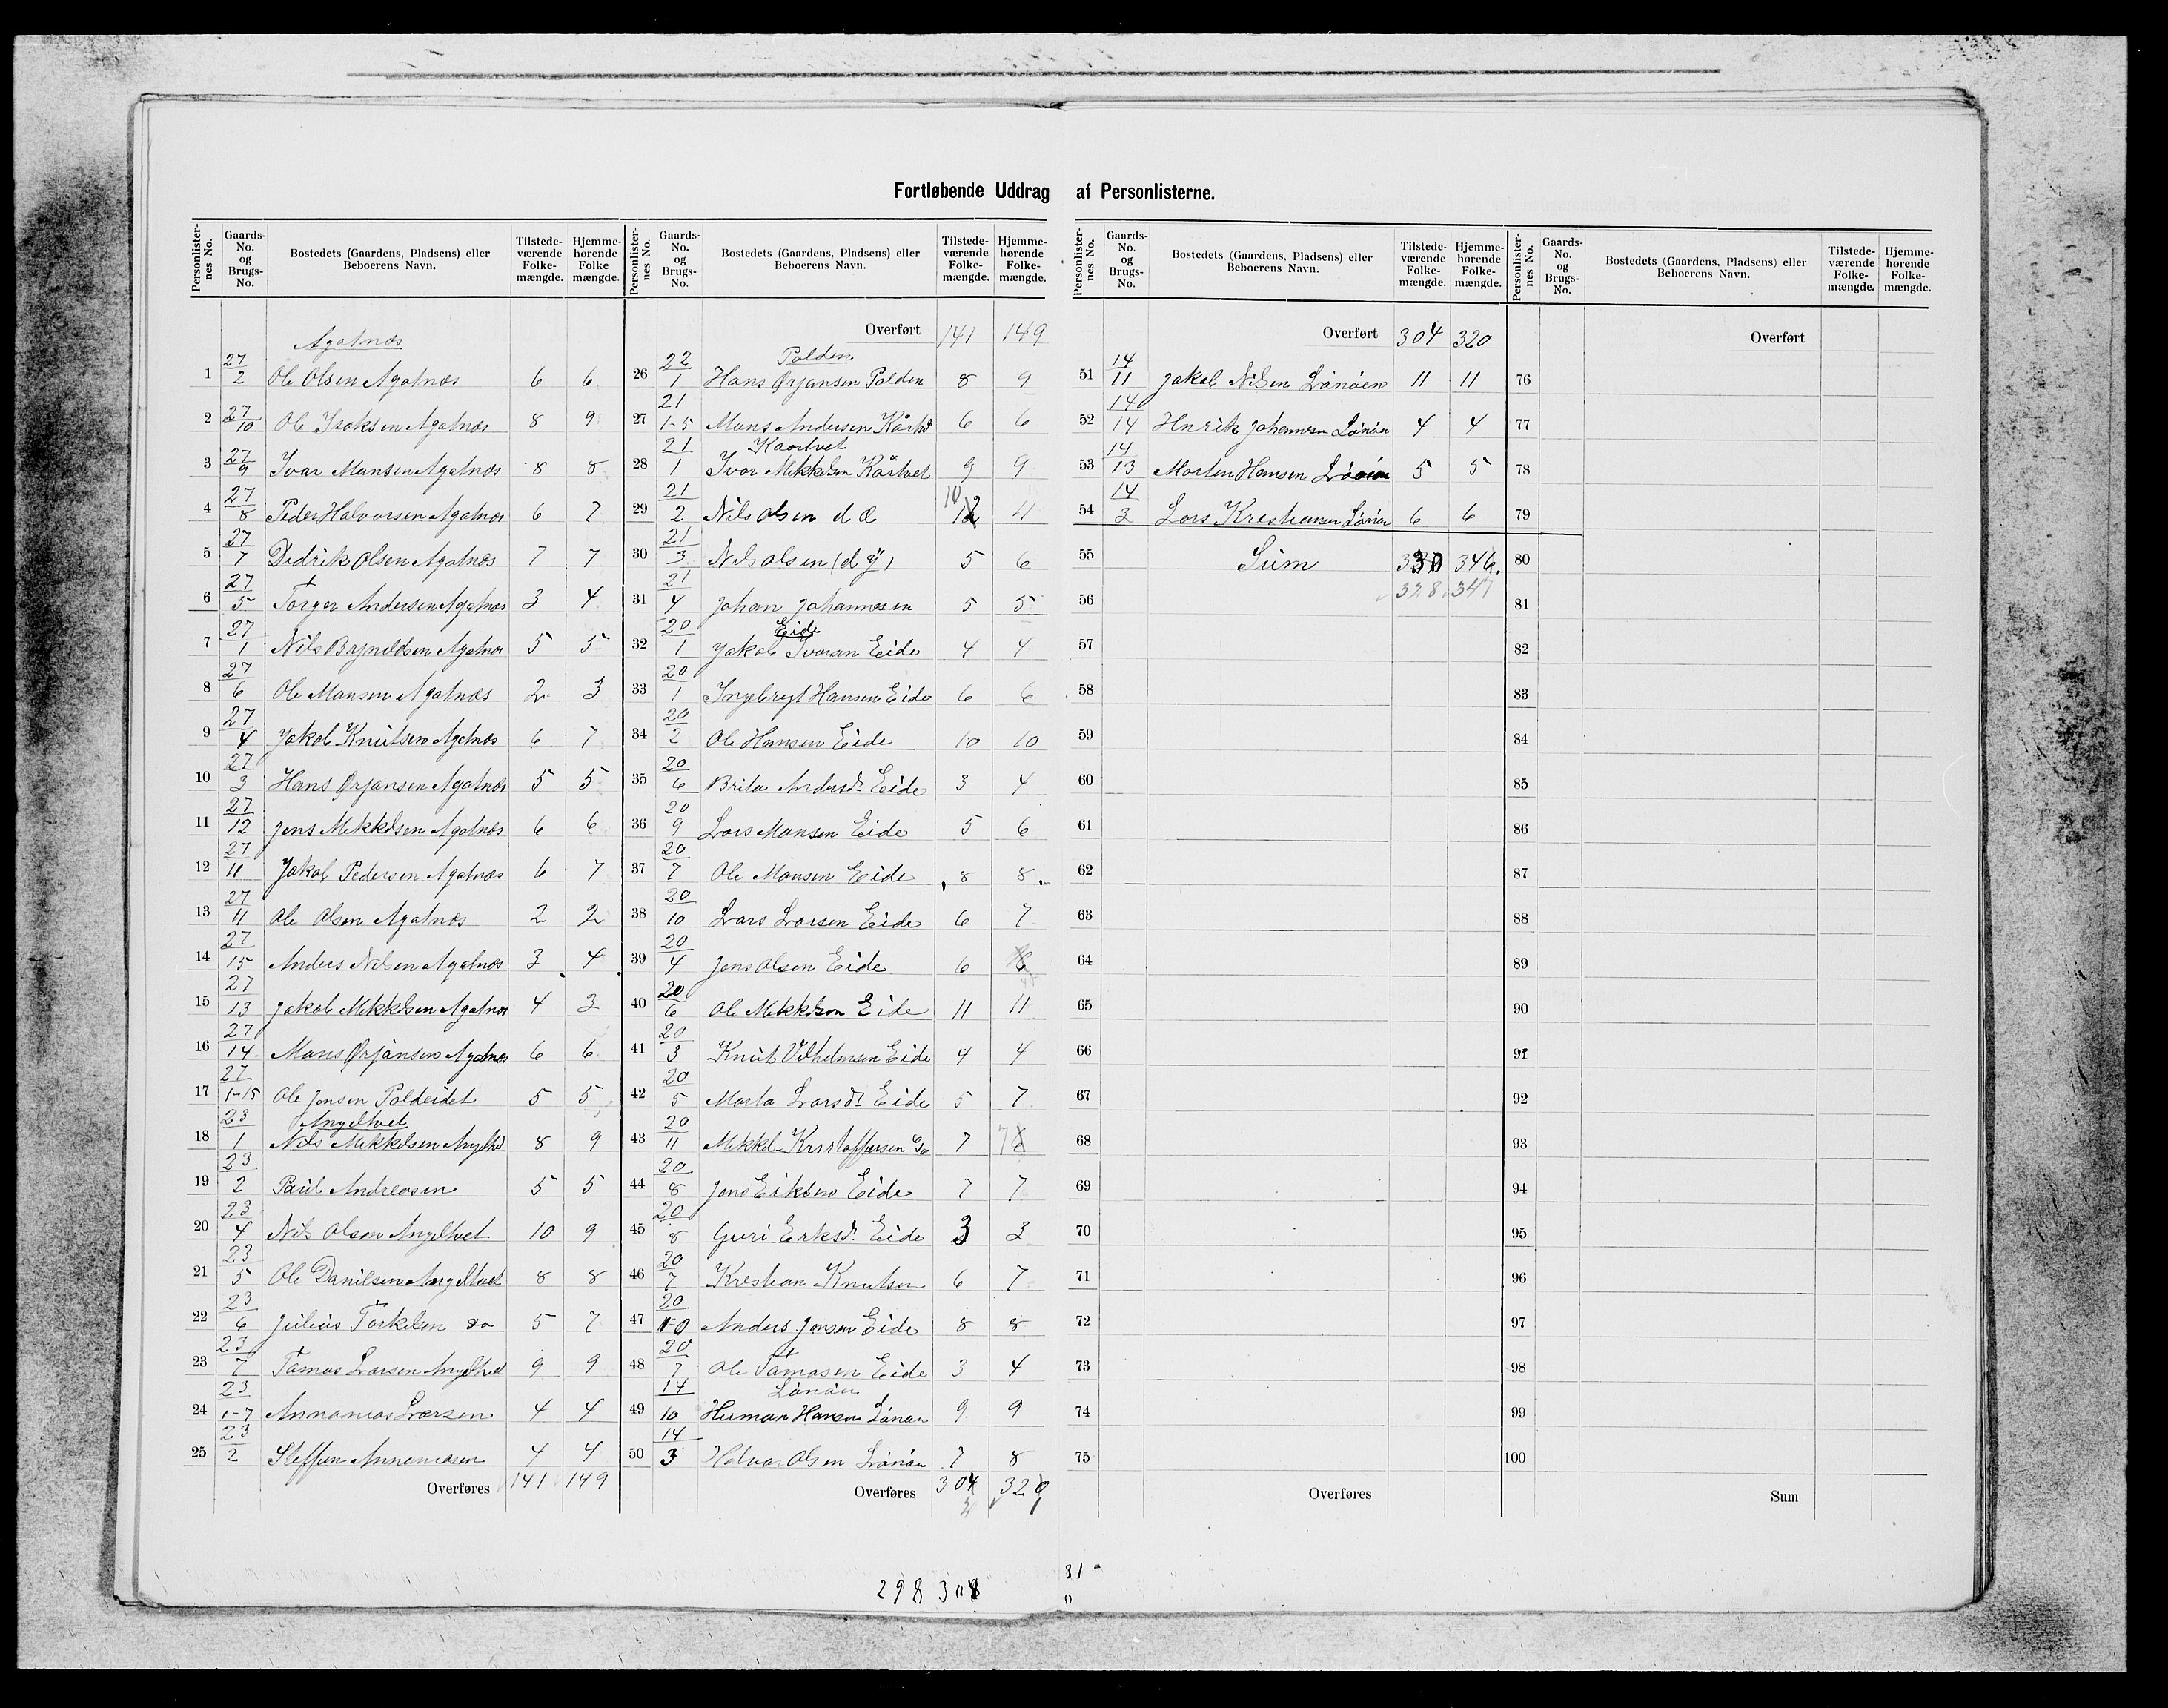 Fortløbende Uddrag af Personlisterne.
Personlister-nes No. Gaards-No. og Brugs-No. Bostedets (Gaardens, Pladsens) eller Beboerens Navn. Tilstede-værende Folke-mængde. Hjemme-hørende Folke mængde.
Agatnæs
1 27/2 Ole Olsen Agatnæs 6 6
2 27/10 Ole Isaksen Agatnæs 8 9
3 27/9 Ivar Mansen Agatnæs 8 8
4 27/8 Peder Halvorsen Agatnæs 6 7
5 27/7 Didrik Olsen Agatnæs 7 7
6 27/5 Torger Andersen Agatnæs 3 4
7 27/1 Nils Brynildsen Agatnæs 5 5
8 27/6 Ole Mansen Agatnæs 2 3
9 27/4 Jakob Knutsen Agatnæs 6 7
10 27/3 Hans Ørjansen Agatnæs 5 5
11 27/12 Jens Mikkelsen Agatnæs 6 6
12 27/11 Jakob Pedersen Agatnæs 6 7
13 27/11 Ole Olsen Agatnæs 2 2
14 27/15 Anders Nilsen Agatnæs 3 4
15 27/13 Jakob Mikkelsen Agatnæs 4 3
16 27/14 Mons Ørjansen Agatnæs 6 6
17 27/1-15 Ole Jensen Poldeidet 5 5
Angeltvet
18 23/1 Nils Mikkelsen Angeltvet 8 9
19 23/2 Paul Andreasen 5 5
20 23/4 Nils Olsen Angeltvet 10 9
21 23/5 Ole Danilsen Angeltvet 8 8
22 23/6 Julius Torkelsen do 5 7
23 23/7 Tomas Larsen Angeltvet 9 9
24 23/1-7 Annanias Larsen 4 4
25 23/2 Steffen Annaniasen 4 4
Overføres 141 149
Personlister-nes No. Gaards-No. og Brugs-No. Bostedets (Gaardens, Pladsens) eller Beboerens Navn. Tilstede-værende Folke-mængde. Hjemme-hørende Folke-mængde.
Overført 141 149
Polden
26 22/1 Hans Ørjansen Polden 8 9
27 21/1-5 Mons Andersen Kårtvet 6 6
Kaartvet
28 21/1 Ivar Mikkelsen Kårtvet 9 9
29 21/2 Nils Olsen d æ 10 12 11
30 21/3 Nils Olsen (d y) 5 6
31 21/4 Johan Johannesen 5 5
Eide
32 20/1 Jakob Ivarsen Eide 4 4
33 20/1 Ingebregt Hansen Eide 6 6
34 20/2 Ole Hansen Eide 10 10
35 20/6 Brita Andersd. Eide 3 4
36 20/9 Lars Monsen Eide 5 6
37 20/7 Ole Monsen Eide 8 8
38 20/10 Lars Larsen Eide 6 7
39 20/4 Jens Olsen Eide 6 6
40 20/6 Ole Mikkelsen Eide 11 11
41 20/3 Knut Vilhelmsen Eide 4 4
42 20/5 Marta Larsdt. Eide 5 7
43 20/11 Mikkel Kristoffersen 7 7
44 20/8 Jens Eiksen Eide 7 7
45 20/8 Guri Erksd. Eide 3 3
46 20/7 Kristian Knutsen 6 7
47 20/10 Anders Jensen Eide 8 8
48 20/7 Ole Tomasen Eide 3 4
Lønøen
49 14/10 Herman Hansen Lønøen 9 9
50 14/3 Halvor Olsen Lønøen 7 8
Overføres 304 320
298 308
Personlister-nes No. Gaards-No. og Brugs-No. Bostedets (Gaardens, Pladsens) eller Beboerens Navn. Tilstede-værende Folke-mængde. Hjemme-hørende Folke-mængde.
Overført 304 320
51 14/11 Jakob Nilsen Lønøen 11 11
52 14/14 Henrik Johannesen Lønøen 4 4
53 14/13 Morten Hansen Lønøen 5 5
54 14/3 Lars Kristiansen Lønøen 6 6
55 Sum 330 346.
56 328 347
57
58
59
60
61
62
63
64
65
66
67
68
69
70
71
72
73
74
75
Overføres
31
Personlister-nes No. Gaards-No. og Brugs-No. Bostedets (Gaardens, Pladsens) eller Beboerens Navn. Tilstede-værende Folke-mængde. Hjemme-hørende Folke-mængde.
Overført
76
77
78
79
80
81
82
83
84
85
86
87
88
89
90
91
92
93
94
95
96
97
98
99
100
Sum